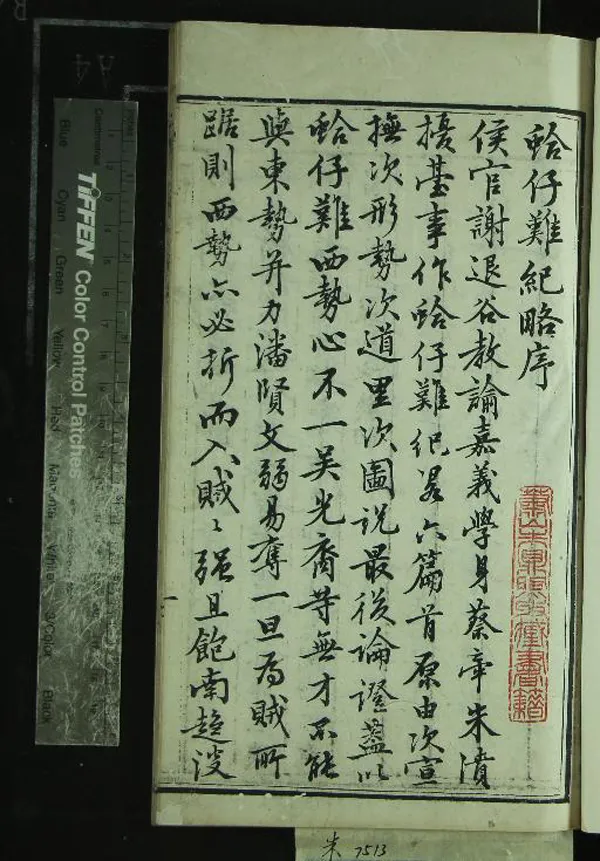 蛤仔難紀略序
侯官謝退谷教諭嘉義學身蔡牽朱濆
擾臺事作蛤仔難紀畧六篇首原由次宣
撫次形勢次道里次圖說最後論證蓋以
蛤仔難西勢心不一吳光裔等無才不能
與東勢并力潘賢文弱易奪一旦為賊所
踞則西勢亦必折而入賊〻强且飽南趨淡
一
蕭山朱鼎煦收藏書籍
TIFFEN Color Control Patches
Blue Cyan Green Yellow Red Magenta White 3/Color Black
Centimetres
Inches
A4
朱 7513